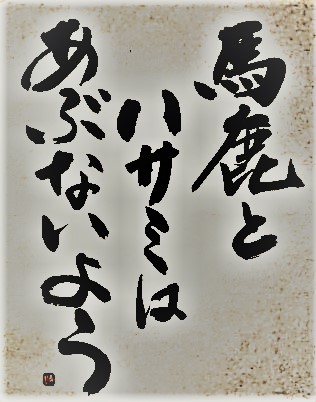 馬鹿と
ハサミは
あぶないよう